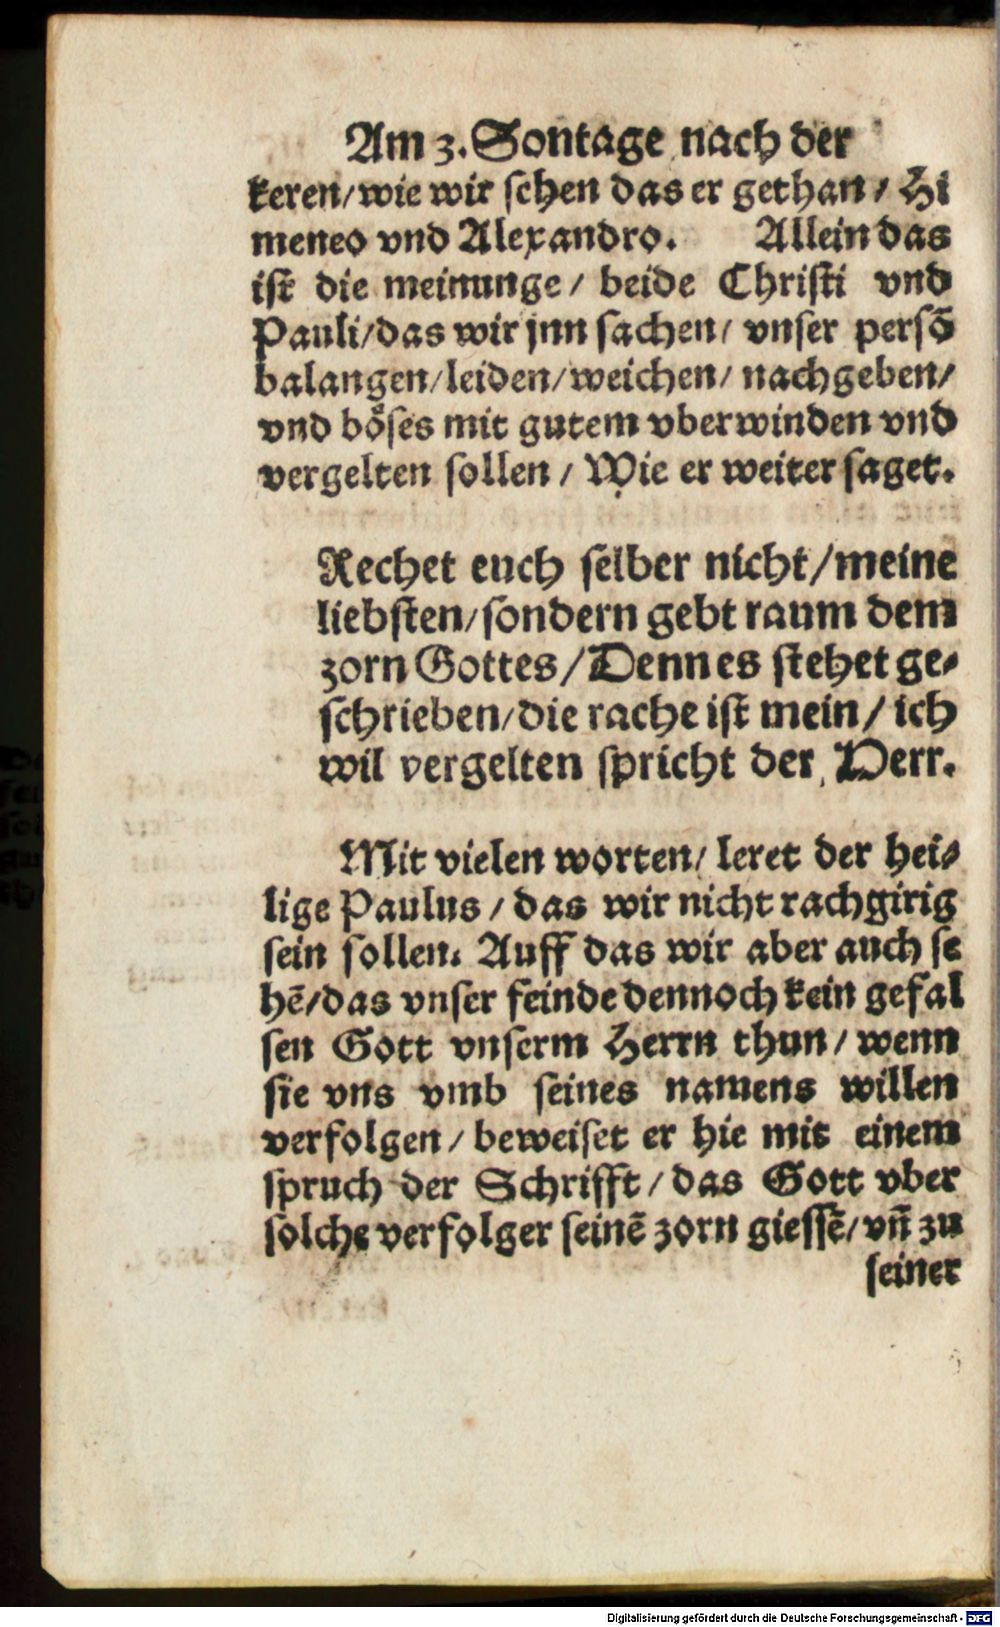 Am 3. Sontage nach der
keren/ wie wir sehen das er gethan/ Hi
meneo vnd Alexandro. Allein das
ist die meinunge/ beide Christi vnd
Pauli/ das wir jnn sachen/ vnser persō
balangen/ leiden/ weichen/ nachgeben/
vnd böses mit gutem vberwinden vnd
vergelten sollen/ Wie er weiter saget.
Rechet euch selber nicht/ meine
liebsten/ sondern gebt raum dem
zorn Gottes/ Denn es stehet ge-
schrieben/ die rache ist mein/ ich
wil vergelten spricht der Herr.
Mit vielen worten/ leret der hei-
lige Paulus/ das wir nicht rachgirig
sein sollen. Auff das wir aber auch se
hē/ das vnser feinde dennoch kein gefal
sen Gott vnserm Herrn thun/ wenn
sie vns vmb seines namens willen
verfolgen/ beweiset er hie mit einem
spruch der Schrifft/ das Gott vber
solche verfolger seinē zorn giessē/ vn̄ zu
seiner
Digitalisierung gefördert durch die Deutsche Forschungsgemeinschaft - DFG